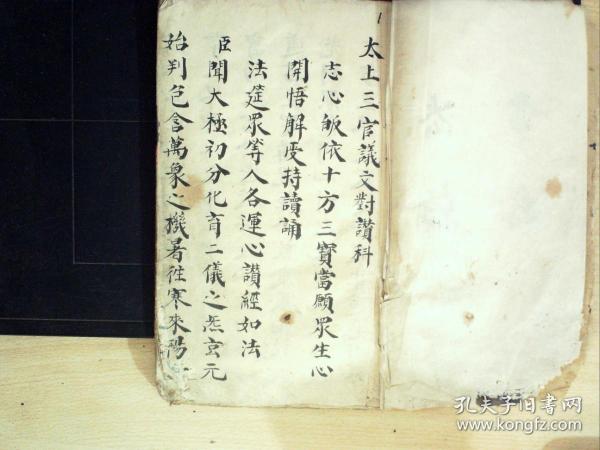 太上三官議文對讚科
志心皈依十方三寶當願眾生心
開悟解受持讀誦
法筵眾等人各運心讚經如法
臣聞大極初分化育二儀之炁玄元
始判包含萬象之機暑往寒來陽
1
孔夫子旧书网
www.kongfz.com